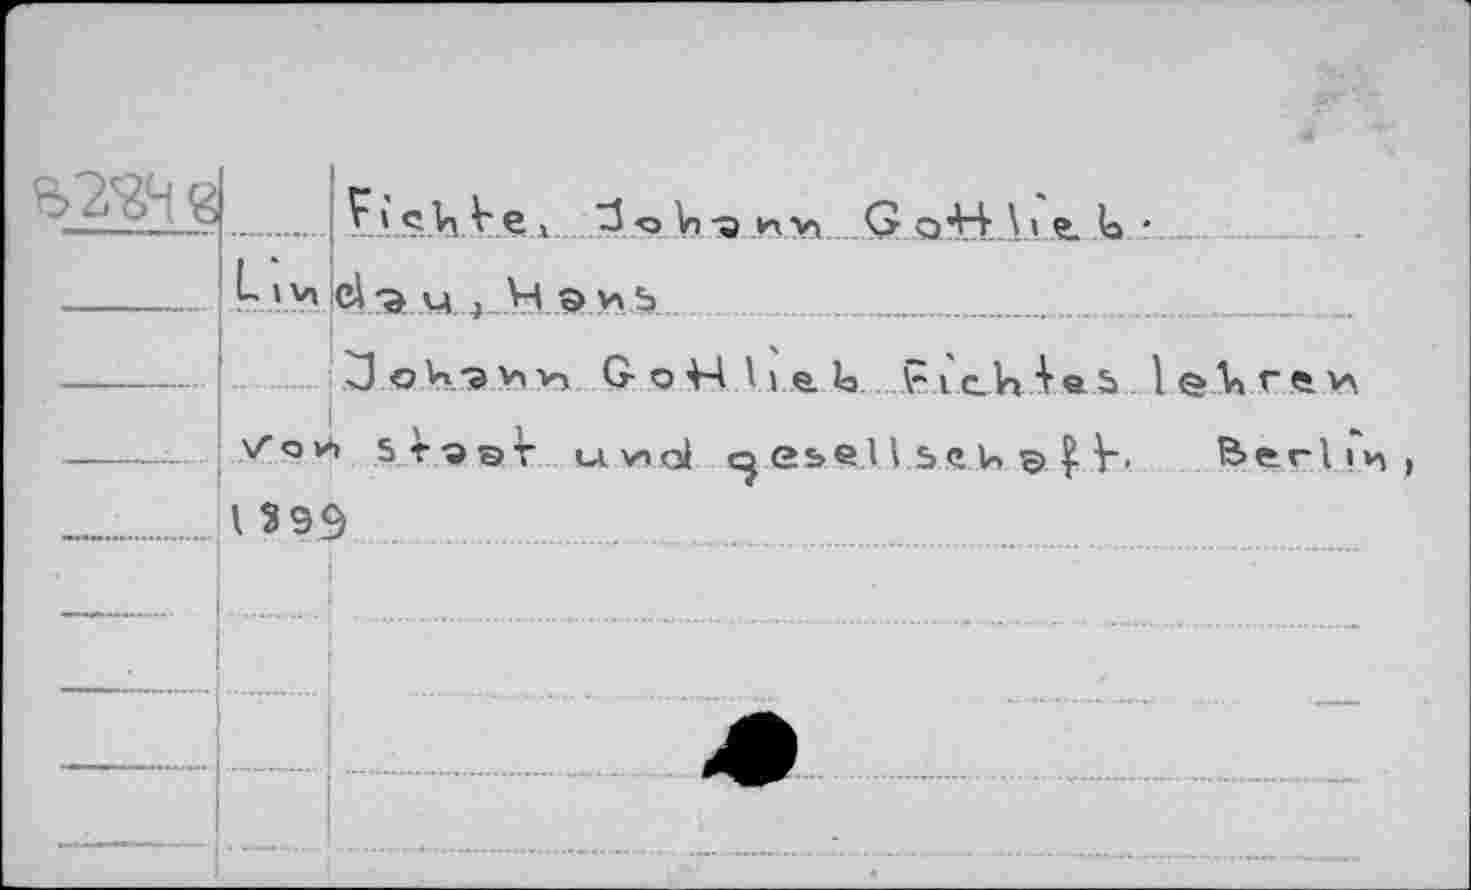 B2848
Fichte, Johann Gottlieb.
Lindau, Hans
Johann Gottlieb Fichtes lehren
von staat und gesellschaft. Berlin,
1899